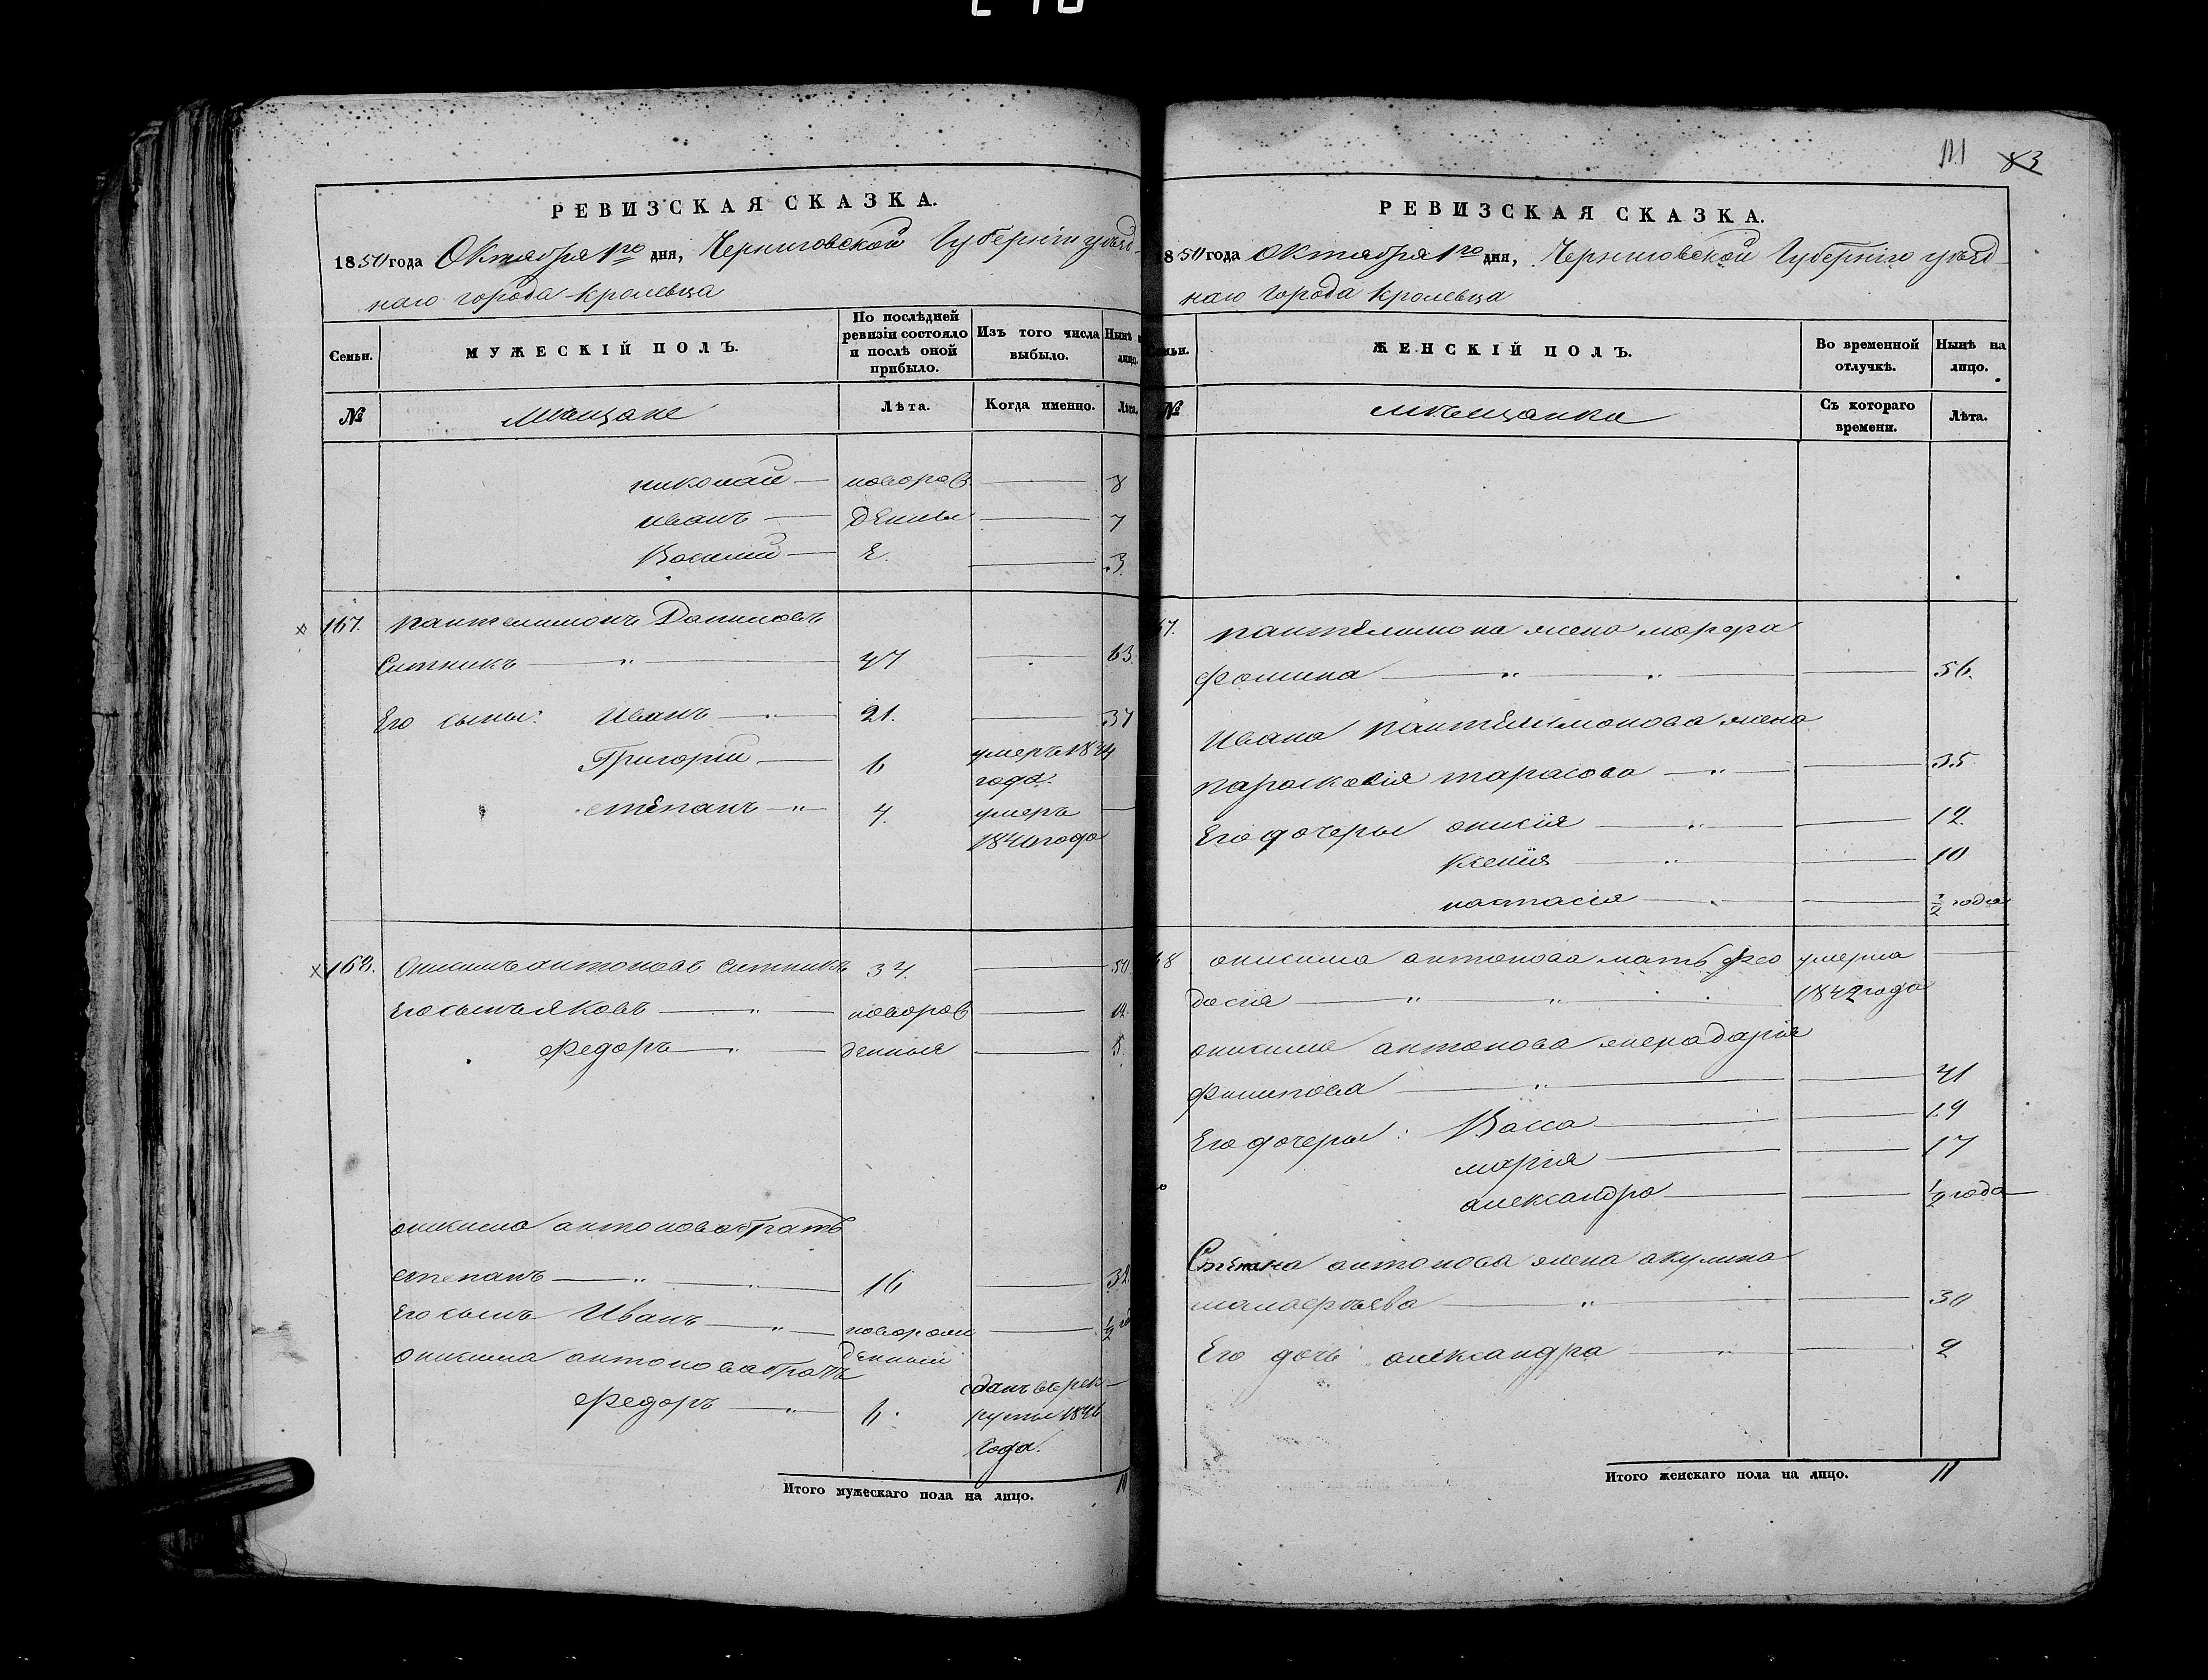 111 83
РЕВИЗСКАЯ СКАЗКА.
1850 года Октября 1го дня, Черниговской Губернiи уѣзд-
наго города Кролевца
Семьи. МУЖЕСКIЙ ПОЛЪ. По послѣдней ревизiи состояло и послѣ оной прибыло. Изъ того числа выбыло. Нынѣ на лицо.
№ мѣщане Лѣта. Когда именно. Лѣта.
николай — новорож 8
иванъ — денны 7
Василий — Е. 3.
167. пантелимонъ Даниловъ
Ситникъ — " — 47 63.
Его сыны: Иванъ — 21. 37
Григорiй — 6 умеръ 1844
года.
степанъ — " — 4. умеръ
1840 года
168. Онисимъ антоновъ ситникъ 34. 50
Его сынъ яковъ — " — новорож 12.
Федоръ — " — денныя 5.
онисима антонова братъ
степанъ — " — 16 32.
Его сынъ Иванъ — " — новорож ½ год
онисима антонова братъ денный
Федоръ — " — 6. сданъ въ рек-
руты 1846
года.
Итого мужескаго пола на лицо. 10
РЕВИЗСКАЯ СКАЗКА.
850 года Октября 1го дня, Черниговской Губернiи уѣзд-
наго города Кролевца
ЖЕНСКIЙ ПОЛЪ. Во временной отлучкѣ. Нынѣ на лицо.
№ мѣщанки Съ котораго времени. Лѣта.
67. пантелимона жена марфа
фомина — " — " — 56.
Ивана пантелимонова жена
парасковiя тарасова — " — 35.
Его дочеры онисiя — " — 12.
Ксенiя — " — 10
настасiя — ½ года
68 онисима антонова мать Фео умерла
досiя — " — " 1842 года
онисима антонова жена дарiя
филипова — " — 41
Его дочеры: Васса — 19
марiя — 17
александра — ½ года
Степана антонова жена акулина
— " — 30
Его дочь александра — " — 2
Итого женскаго пола на лицо. 11